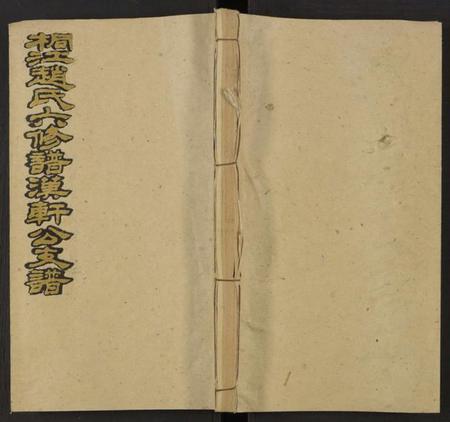 桐江趙氏六修譜漢軒公支譜